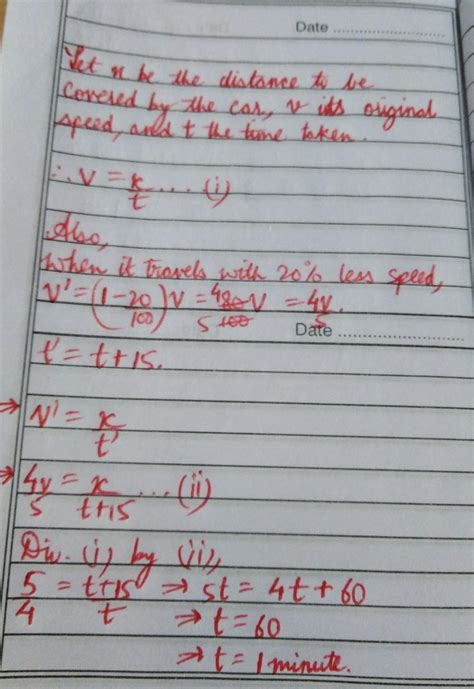 Date ....................
Let x be the distance to be
covered by the car, v its original
speed, and t the time taken.
∴ v = x/t .... (i)
Also,
When it travels with 20% less speed,
v' = (1 - 20/100)v = 4 80/5 100 v = 4v/5.
Date ....................
t' = t + 15.
⇒ v' = x/t'
⇒ 4v/5 = x/t+15 ... (ii)
Div. (i) by (ii),
5/4 = t+15/t ⇒ 5t = 4t + 60
⇒ t = 60
⇒ t = 1 minute.